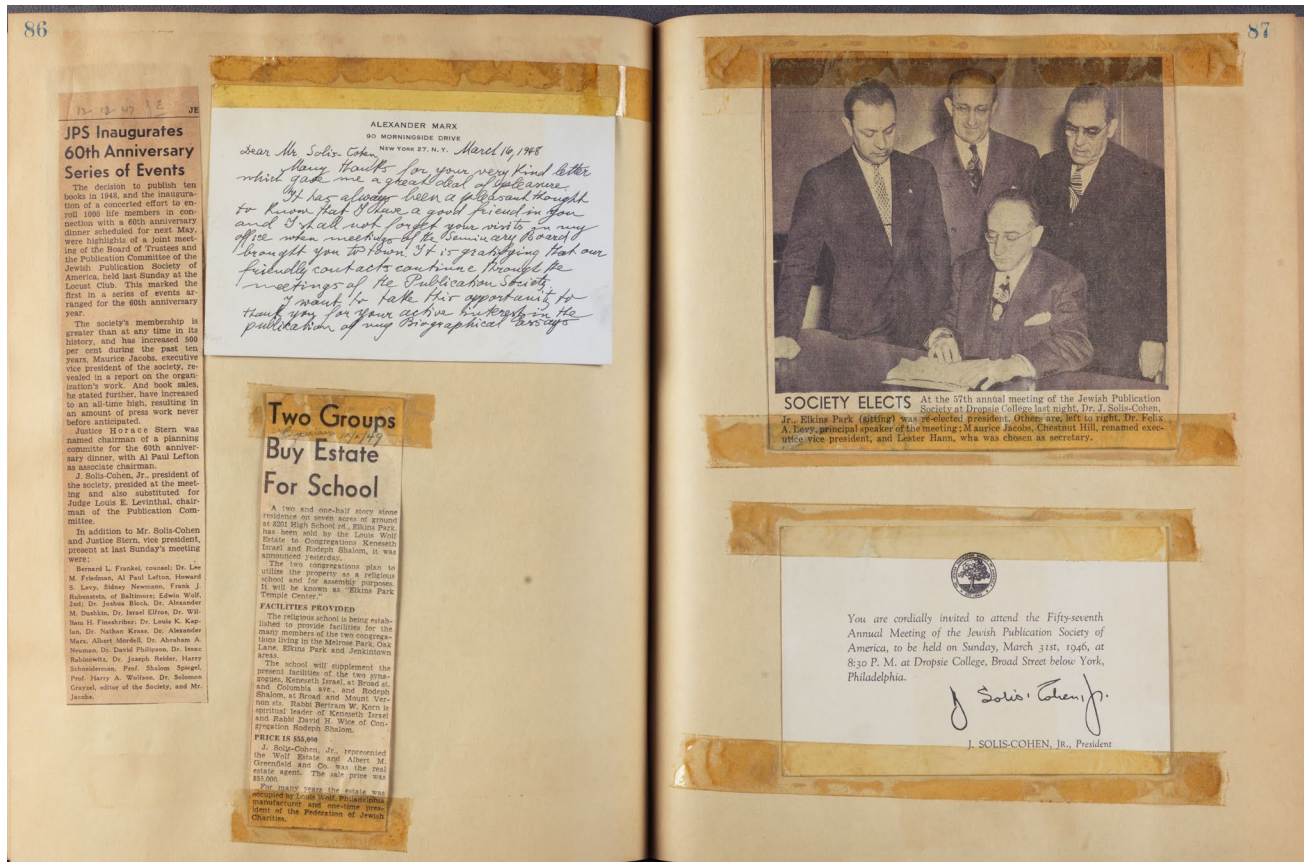 86
12-12-47 JE
JE
JPS Inaugurates
60th Anniversary
Series of Events
The decision to publish ten
books in 1948, and the inaugura-
tion of a concerted effort to en-
roll 1000 life members in con-
nection with a 60th anniversary
dinner scheduled for next May,
were highlights of a joint meet-
ing of the Board of Trustees and
the Publication Committee of the
Jewish Publication Society of
America, held last Sunday at the
Locust Club. This marked the
first in a series of events ar-
ranged for the 60th anniversary
year.
The society's membership is
greater than at any time in its
history, and has increased 500
per cent during the past ten
years, Maurice Jacobs, executive
vice president of the society, re-
vealed in a report on the organ-
ization's work. And book sales,
he stated further, have increased
to an all-time high, resulting in
an amount of press work never
before anticipated.
Justice Horace Stern was
named chairman of a planning
committe for the 60th anniver-
sary dinner, with Al Paul Lefton
as associate chairman.
J. Solis-Cohen, Jr., president of
the society, presided at the meet-
ing and also substituted for
Judge Louis E. Levinthal, chair-
man of the Publication Com-
mittee.
In addition to Mr. Solis-Cohen
and Justice Stern, vice president,
present at last Sunday's meeting
were:
Bernard L. Frankel, counsel; Dr. Lee
M. Friedman, Al Paul Lefton, Howard
S. Levy, Sidney Neumann, Frank J.
Rubenstein, of Baltimore; Edwin Wolf,
2nd; Dr. Joshua Bloch, Dr. Alexander
M. Dushkin, Dr. Israel Elfros, Dr. Wil-
liam H. Fineshriber; Dr. Louis K. Kap-
lan, Dr. Nathan Krass, Dr. Alexander
Marx, Albert Mordell, Dr. Abraham A.
Neuman, Dr. David Philipson, Dr. Isaac
Rabinowitz, Dr. Joseph Reider, Harry
Schneiderman, Prof. Shalom Spiegel,
Prof. Harry A. Wolfson, Dr. Solomon
Grayzel, editor of the Society, and Mr.
Jacobs.
ALEXANDER MARX
90 MORNINGSIDE DRIVE
NEW YORK 27, N. Y.
March 16, 1948
Dear Mr. Solis-Cohen
Many thanks for your very kind letter
which gave me a great deal of pleasure.
It has always been a pleasant thought
to know that I have a good friend in you
and I shall not forget your visits in my
office when meetings of the Seminary Board
brought you to town. It is gratifying that our
friendly contacts continue through the
meetings of the Publication Society.
I want to take this opportunity to
thank you for your active interest in the
publication of my Biographical Essays
Two Groups
Buy Estate
For School
A two and one-half story stone
residence on seven acres of ground
at 8201 High School rd., Elkins Park,
has been sold by the Louis Wolf
Estate to Congregations Keneseth
Israel and Rodeph Shalom, it was
announced yesterday.
The two congregations plan to
utilize the property as a religious
school and for assembly purposes.
It will be known as "Elkins Park
Temple Center."
FACILITIES PROVIDED
The religious school is being estab-
lished to provide facilities for the
many members of the two congrega-
tions living in the Melrose Park, Oak
Lane, Elkins Park and Jenkintown
areas.
The school will supplement the
present facilities of the two syna-
gogues, Keneseth Israel, at Broad st.
and Columbia ave., and Rodeph
Shalom, at Broad and Mount Ver-
non sts. Rabbi Bertram W. Korn is
spiritual leader of Keneseth Israel
and Rabbi David H. Wice of Con-
gregation Rodeph Shalom.
PRICE IS $55,000
J. Solis-Cohen, Jr., represented
the Wolf Estate and Albert M.
Greenfield and Co. was the real
estate agent. The sale price was
$55,000.
For many years the estate was
occupied by Louis Wolf, Philadelphia
manufacturer and one-time presi-
dent of the Federation of Jewish
Charities.
87
SOCIETY ELECTS At the 57th annual meeting of the Jewish Publication
Society at Dropsie College last night, Dr. J. Solis-Cohen,
Jr., Elkins Park (sitting) was re-elected president. Others are, left to right, Dr. Felix
A. Levy, principal speaker of the meeting; Maurice Jacobs, Chestnut Hill, renamed exec-
utice vice president, and Lester Hann, wha was chosen as secretary.
You are cordially invited to attend the Fifty-seventh
Annual Meeting of the Jewish Publication Society of
America, to be held on Sunday, March 31st, 1946, at
8:30 P. M. at Dropsie College, Broad Street below York,
Philadelphia.
J Solis-Cohen, Jr.
J. SOLIS-COHEN, JR., President